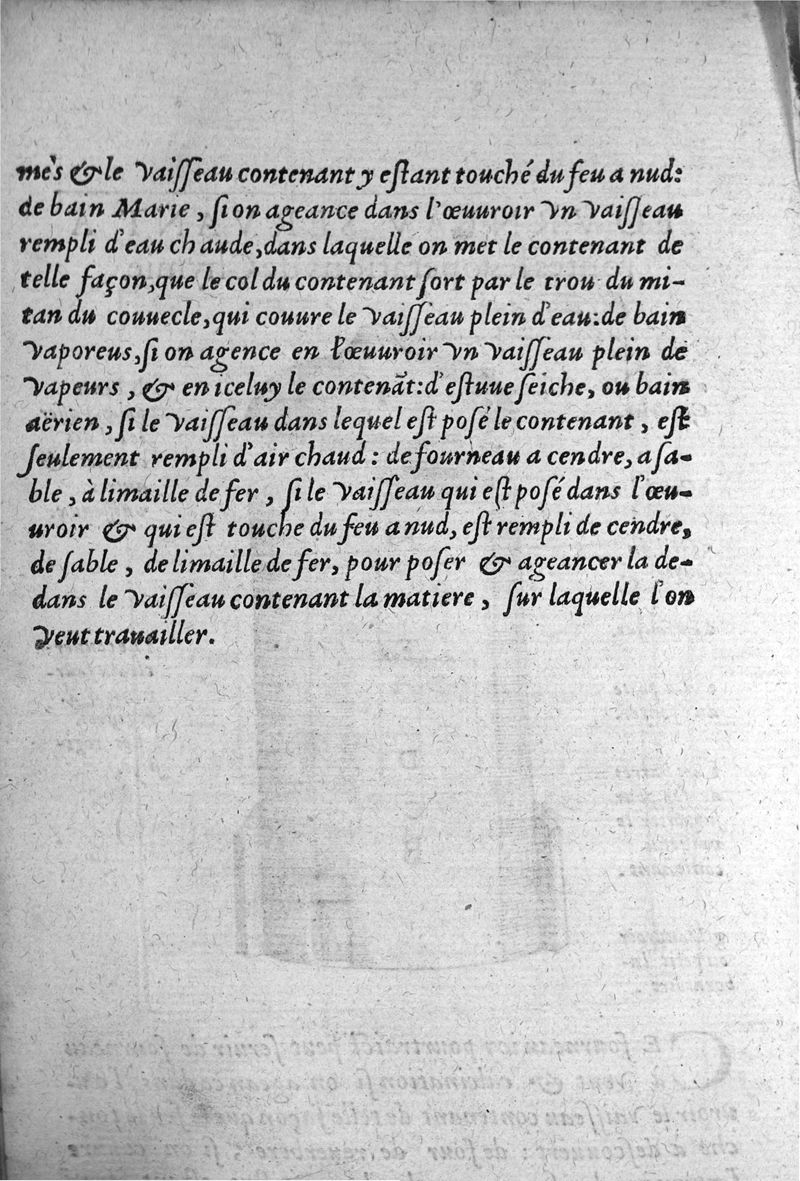 mès & le vaiſſeau contenant y eſtant touché du feu a nud:
de bain Marie, ſi on ageance dans l'œuuroir vn vaiſſeau
rempli d'eau chaude, dans laquelle on met le contenant de
telle façon, que le col du contenant ſort par le trou du mi-
tan du couuecle, qui couure le vaiſſeau plein d'eau: de bain
vaporeus, ſi on agence en l'œuuroir vn vaiſſeau plein de
vapeurs, & en iceluy le contenãt: d'eſtuue ſeiche, ou bain
aërien, ſi le vaiſſeau dans lequel eſt poſé le contenant, eſt
ſeulement rempli d'air chaud: de fourneau a cendre, a ſa-
ble, à limaille de fer, ſi le vaiſſeau qui eſt poſé dans l'œu-
uroir & qui eſt touche du feu a nud, eſt rempli de cendre,
de ſable, de limaille de fer, pour poſer & ageancer la de-
dans le vaiſſeau contenant la matiere, ſur laquelle l'on
veut trauailler.